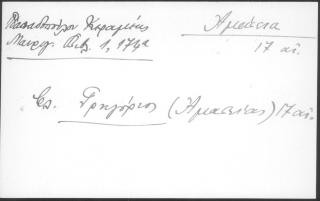 Παπαδοπούλου Κεραμέως
Μαυρογ. Βιβ. 1, 174α
Ἀμάσεια
17 αἰ.
Γρηγόριος (Ἀμασείας) 17 αἰ.